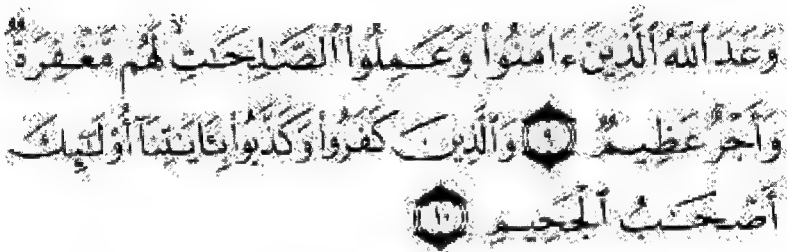 وَعَدَ ٱللَّهُ ٱلَّذِينَ ءَامَنُوا۟ وَعَمِلُوا۟ ٱلصَّـٰلِحَـٰتِ ۙ لَهُم مَّغْفِرَةٌ
وَأَجْرٌ عَظِيمٌ ﴿٩﴾ وَٱلَّذِينَ كَفَرُوا۟ وَكَذَّبُوا۟ بِـَٔايَـٰتِنَآ أُو۟لَـٰٓئِكَ
أَصْحَـٰبُ ٱلْجَحِيمِ ﴿١٠﴾